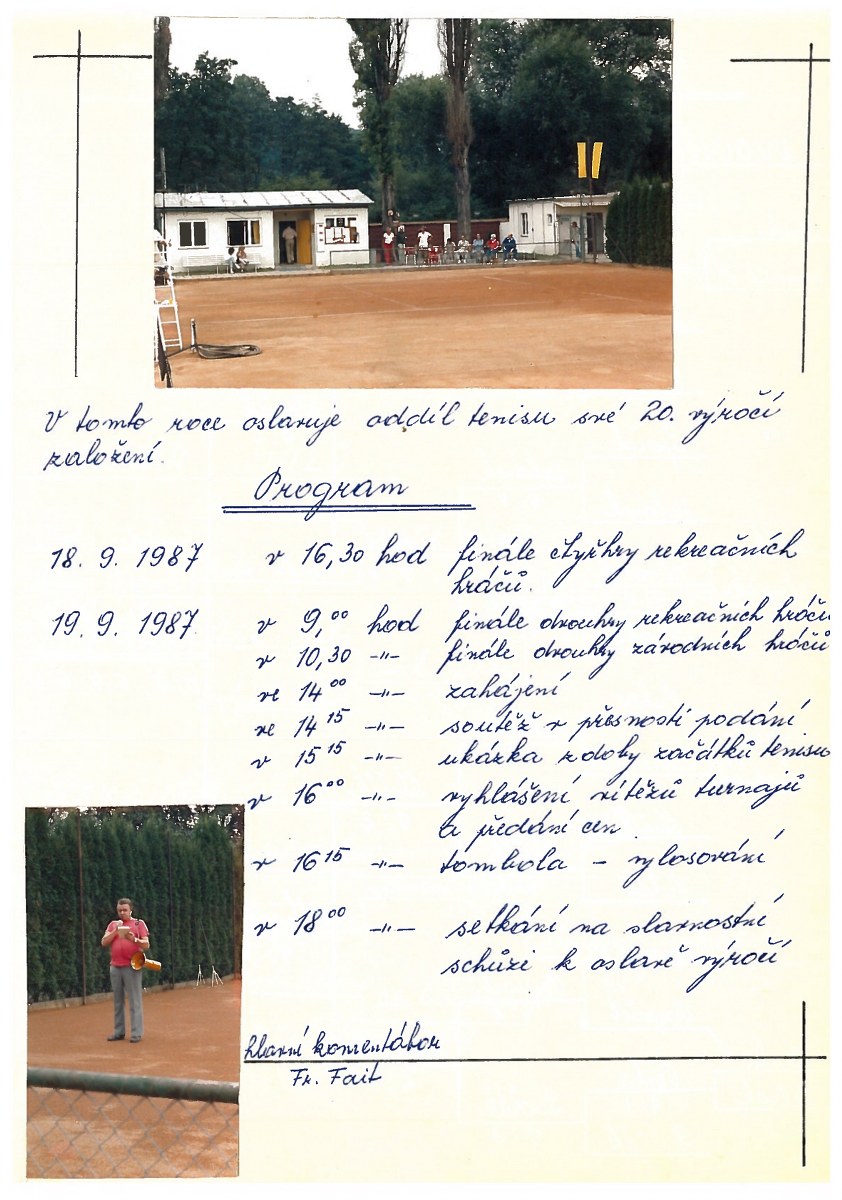 V tomto roce oslavuje oddíl tenisu své 20. výročí
založení.
Program
18. 9. 1987 v 16,30 hod finále čtyřhry rekreačních
hráčů.
19. 9. 1987. v 9,00 hod finále dvouhry rekreačních hráčů
v 10,30 -"- finále dvouhry závodních hráčů
ve 14 00 -"- zahájení
ve 14 15 -"- soutěž v přesnosti podání
v 15 15 -"- ukázka z doby začátků tenisu
v 16 00 -"- vyhlášení vítězů turnajů
a předání cen.
v 16 15 -"- tombola - vylosování
v 18 00 -"- setkání na slavnostní
schůzi k oslavě výročí
hlavní komentátor
Fr. Fait